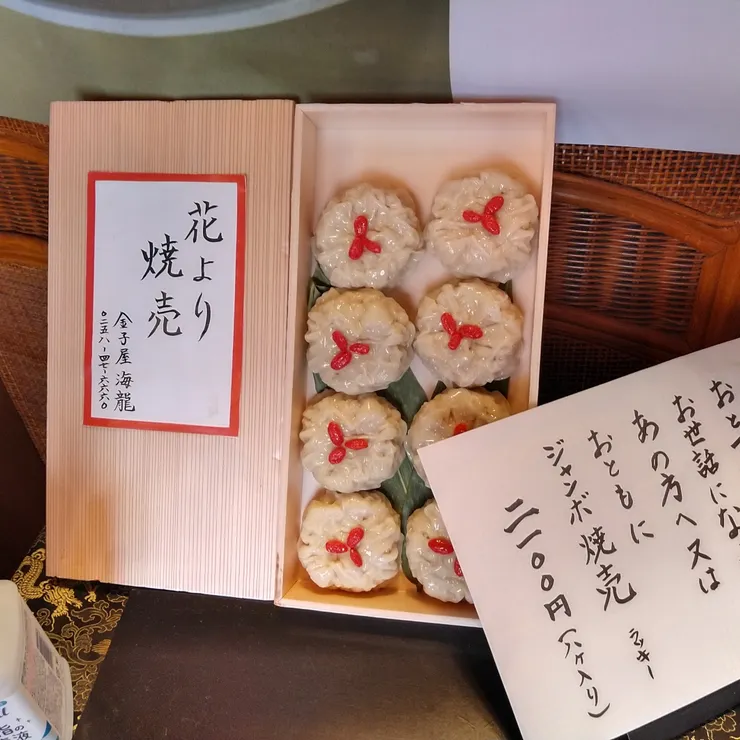 花より
焼売
金子屋 海龍
〇二五八-四七-六六六〇
お世話にな
あの方へ又は
おともに
ジャンボ焼売 ラッキー
二一〇〇円(八ヶ入り)